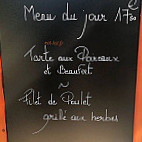 Menu du jour 17€50
Tarte aux Poireaux
et Beaufort
~
Filet de Poulet
grillé aux herbes